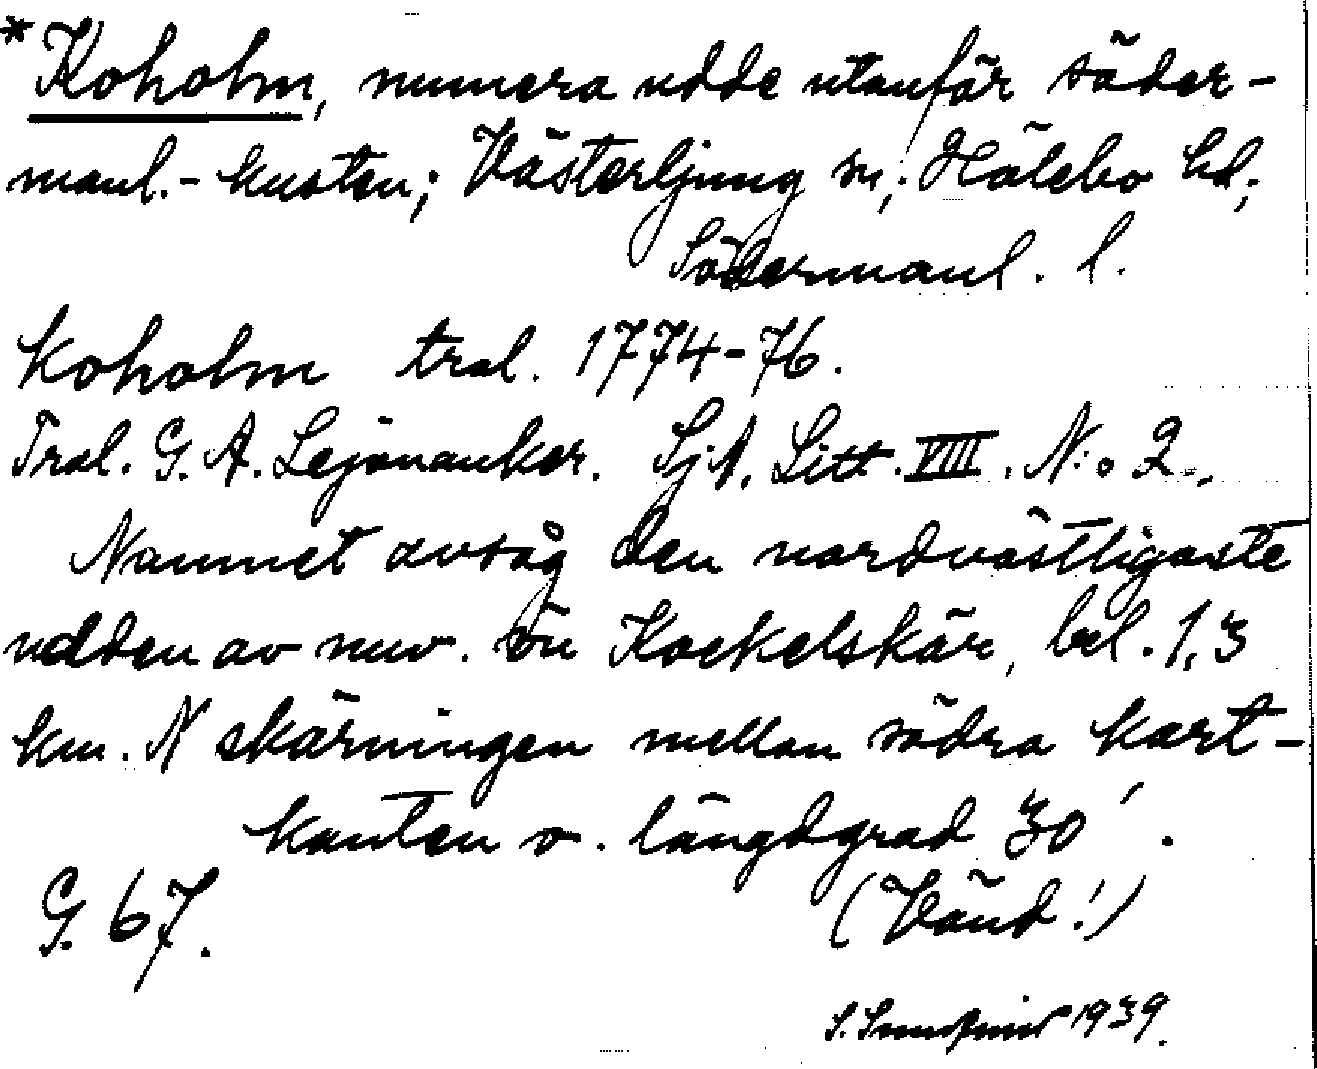 *Koholm, numera udde utanför söder-
manl.-kusten; Västerljung sn, Hölebo hd,
Södermanl. l.
Koholm tral. 1774-76.
Tral. G. A. Lejonanker. SjA. Litt. VIII. N:o 2.
Namnet avsåg den nordvästligaste
udden av nuv. ön Kockelskär, bel. 1,3
km. N skärningen mellan södra kart-
kanten o. längdgrad 30'.
G. 67.
(Vänd!)
1939.